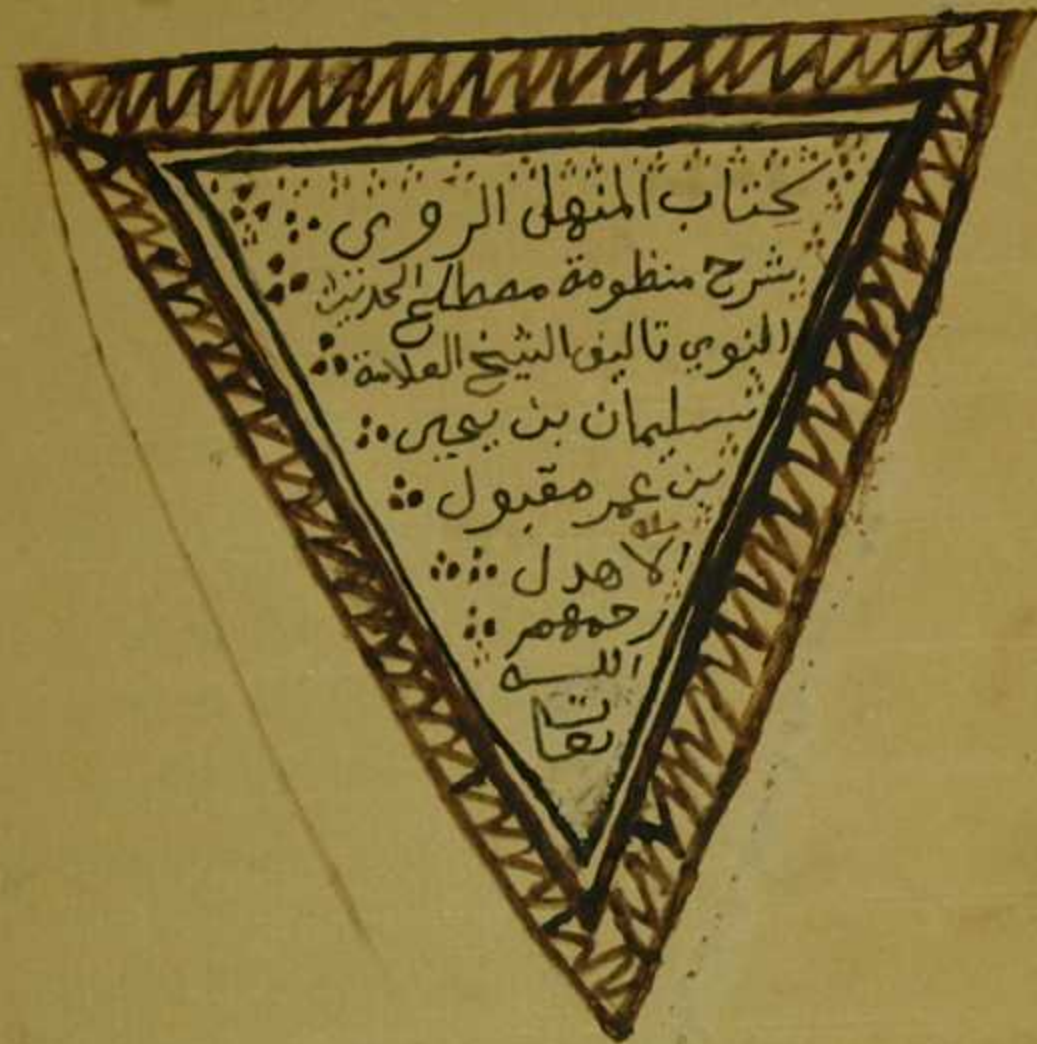 كتاب المنهل الروي
شرح منظومة مصطلح الحديث
النبوي تاليف الشيخ العلامة
سليمان بن يحيى
بن عمر مقبول
الاهدل
رحمهم
الله
تعا